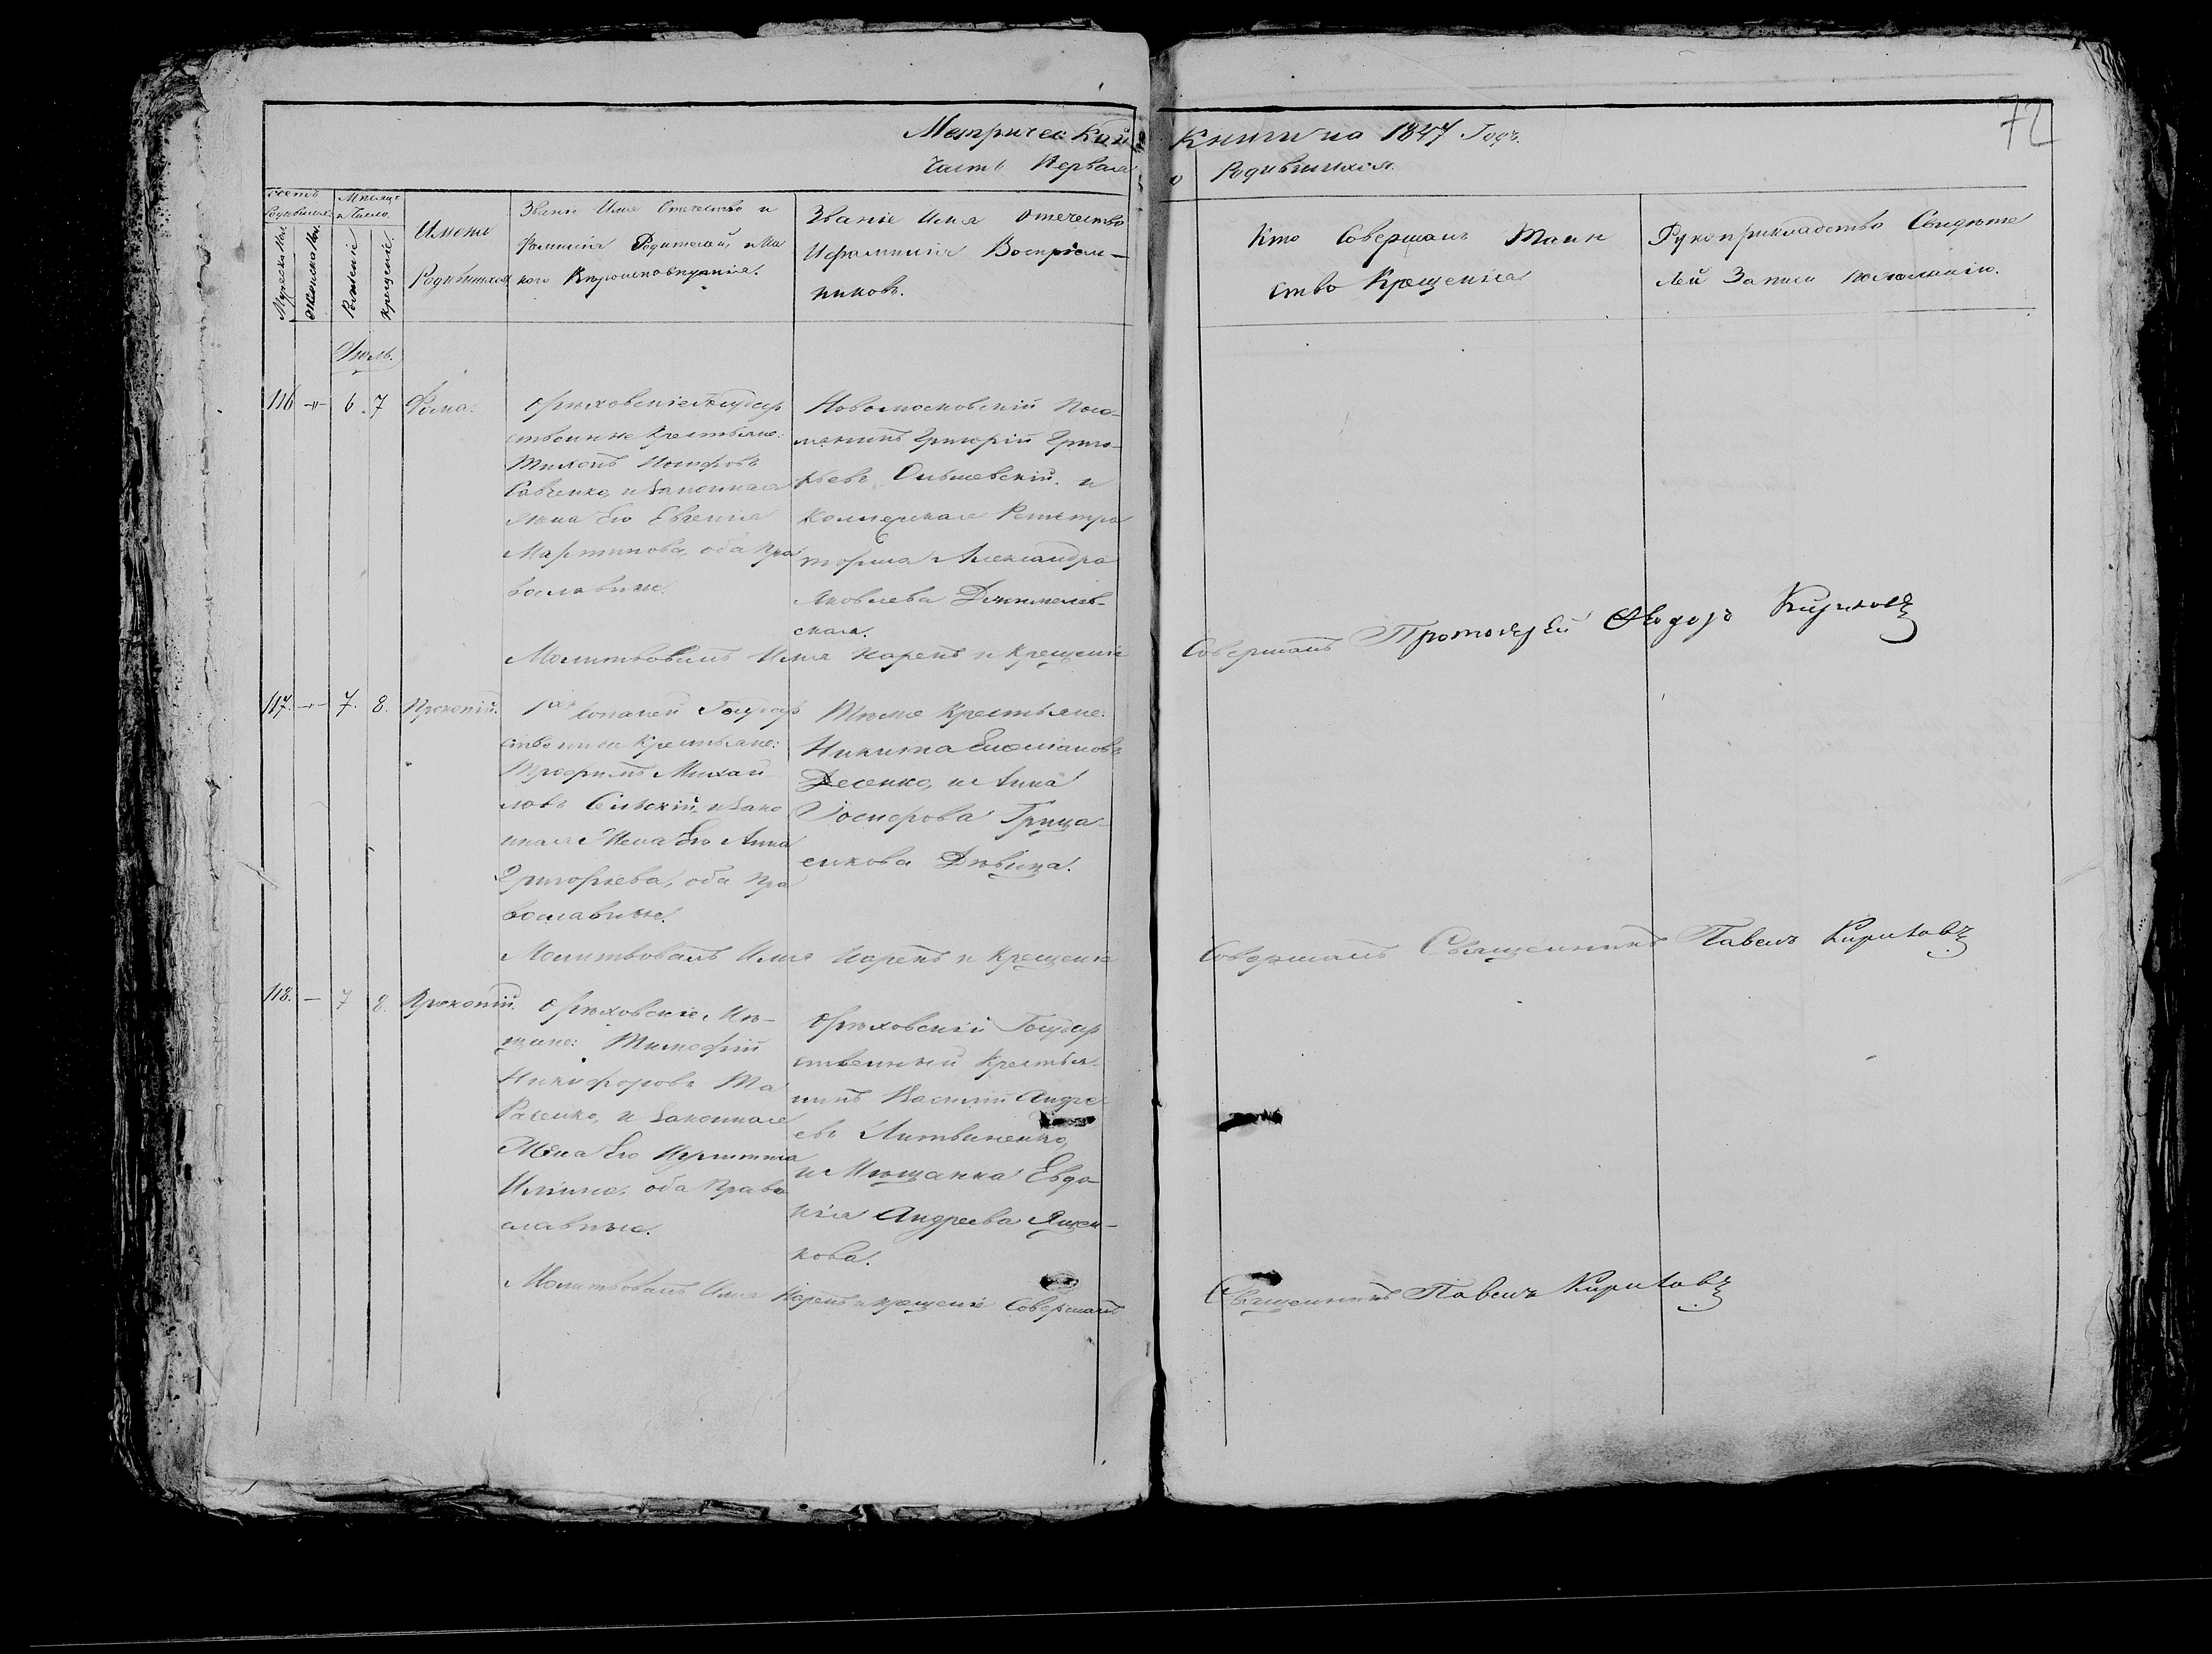 Метрической Книги на 1847 Годъ.
72
Часть Первая о Родившихся.
Счетъ Родившихся
Мѣсяцъ и Число.
Мужеска пол.
Женска пол.
Рожденіе
Крещеніе.
Имена Родившихся
Званіе Имя Отечество и
Фамилія Родителей, и ка
кого Вѣроисповѣданія.
Званіе Имя Отечество
И фамилія Воспріем-
никовъ.
Кто Совершалъ Таин
ство Крещенія
Рукоприкладство Свидѣте
лей Записи по желанію.
Іюль.
116 -"- 6. 7 Фома.
Орѣховскіе Государ
ственные Крестьяне:
Иосифовъ
Савченко, и Законная
Жена Его Евгенія
Мартинова, оба Пра
вославные.
Новомосковскій
Григорій Григо-
рьевъ Ольшевскій. и
Колежская Регистра
торша Александра
Яковлева
ская.
Молитвовалъ Имя нарекъ и Крещеніе
Совершалъ Протоіерей Ѳеодоръ Кириковъ
117. -"- 7. 8. Прокопій.
Государ
ственные Крестьяне:
Трофимъ Михай
ловъ Сѣльскій, и Зако
нная Жена Его Анна
Григорьева, оба Пра
вославные.
Тѣже Крестьяне:
Никита Емеліановъ
Десенко, и Анна
Іосифова Грица-
енкова Дѣвица.
Молитвовалъ Имя Нарекъ и Крещеніе
Совершалъ Священникъ Павелъ Кириковъ
118. - 7 8. Прокопій.
Орѣховскіе Мѣ-
щане: Тимофій
Никифоровъ Та
расенко, и Законная
Жена Его
Ильина, оба Право
славные.
Орѣховскій Государ
ственный Крестья-
нинъ Василій Андре
евъ Литвиненко,
и Мѣщанка Евдо-
кія Андреева Ящен-
кова.
Молитвовалъ Имя Нарекъ и крещеніе Совершалъ
Священникъ Павелъ Кириковъ